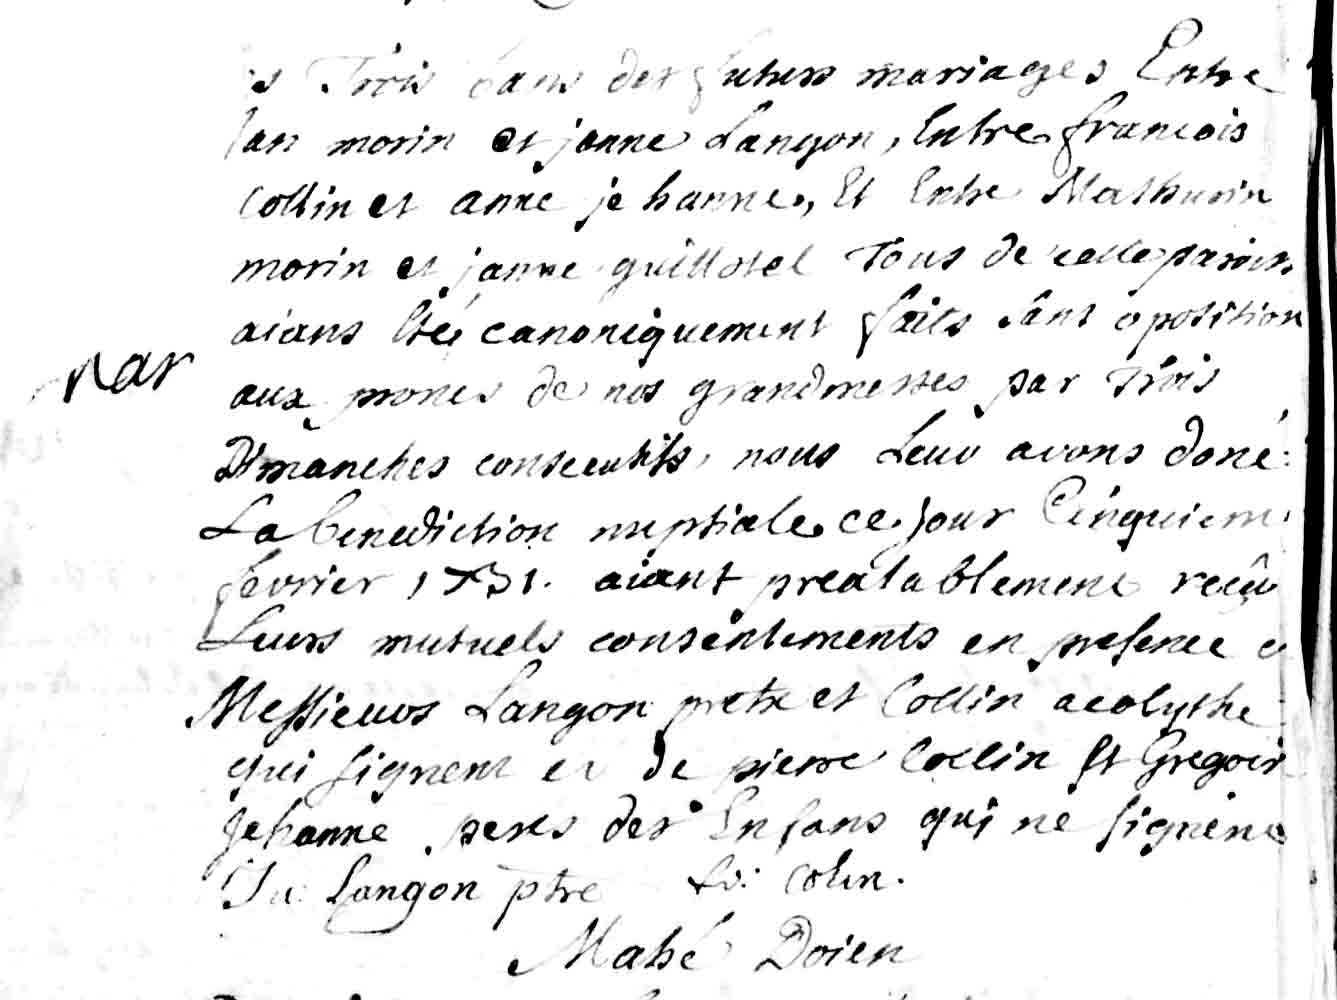 es Trois bans des futurs mariages Entre
Jan morin et janne Langon, Entre francois
Collin et anne jehanne, Et Entre Mathurin
morin et janne guillotel Tous de cette paroisse
aians Eté canoniquement faits sans oposition
Mar
aux prones de nos grandmesses par Trois
Dimanches consecutifs, nous Leur avons doné
La benediction nuptiale ce jour Cinquiem
fevrier 1731. aiant prealablement reçu
Leurs mutuels consentements en presence
Messieurs Langon pretre et Collin acolythe
qui signent et de pierre Collin Et Gregoire
Jehanne peres des Enfans qui ne signent
Langon ptre colin.
Mahé Doien